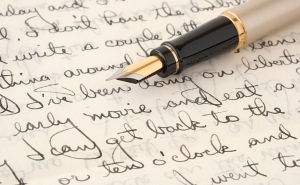 day and I don't have the
write a couple lett
thing around
I've been doing on liberty
early movie and eat a
I can get back to the
or ten o'clock and
I went to